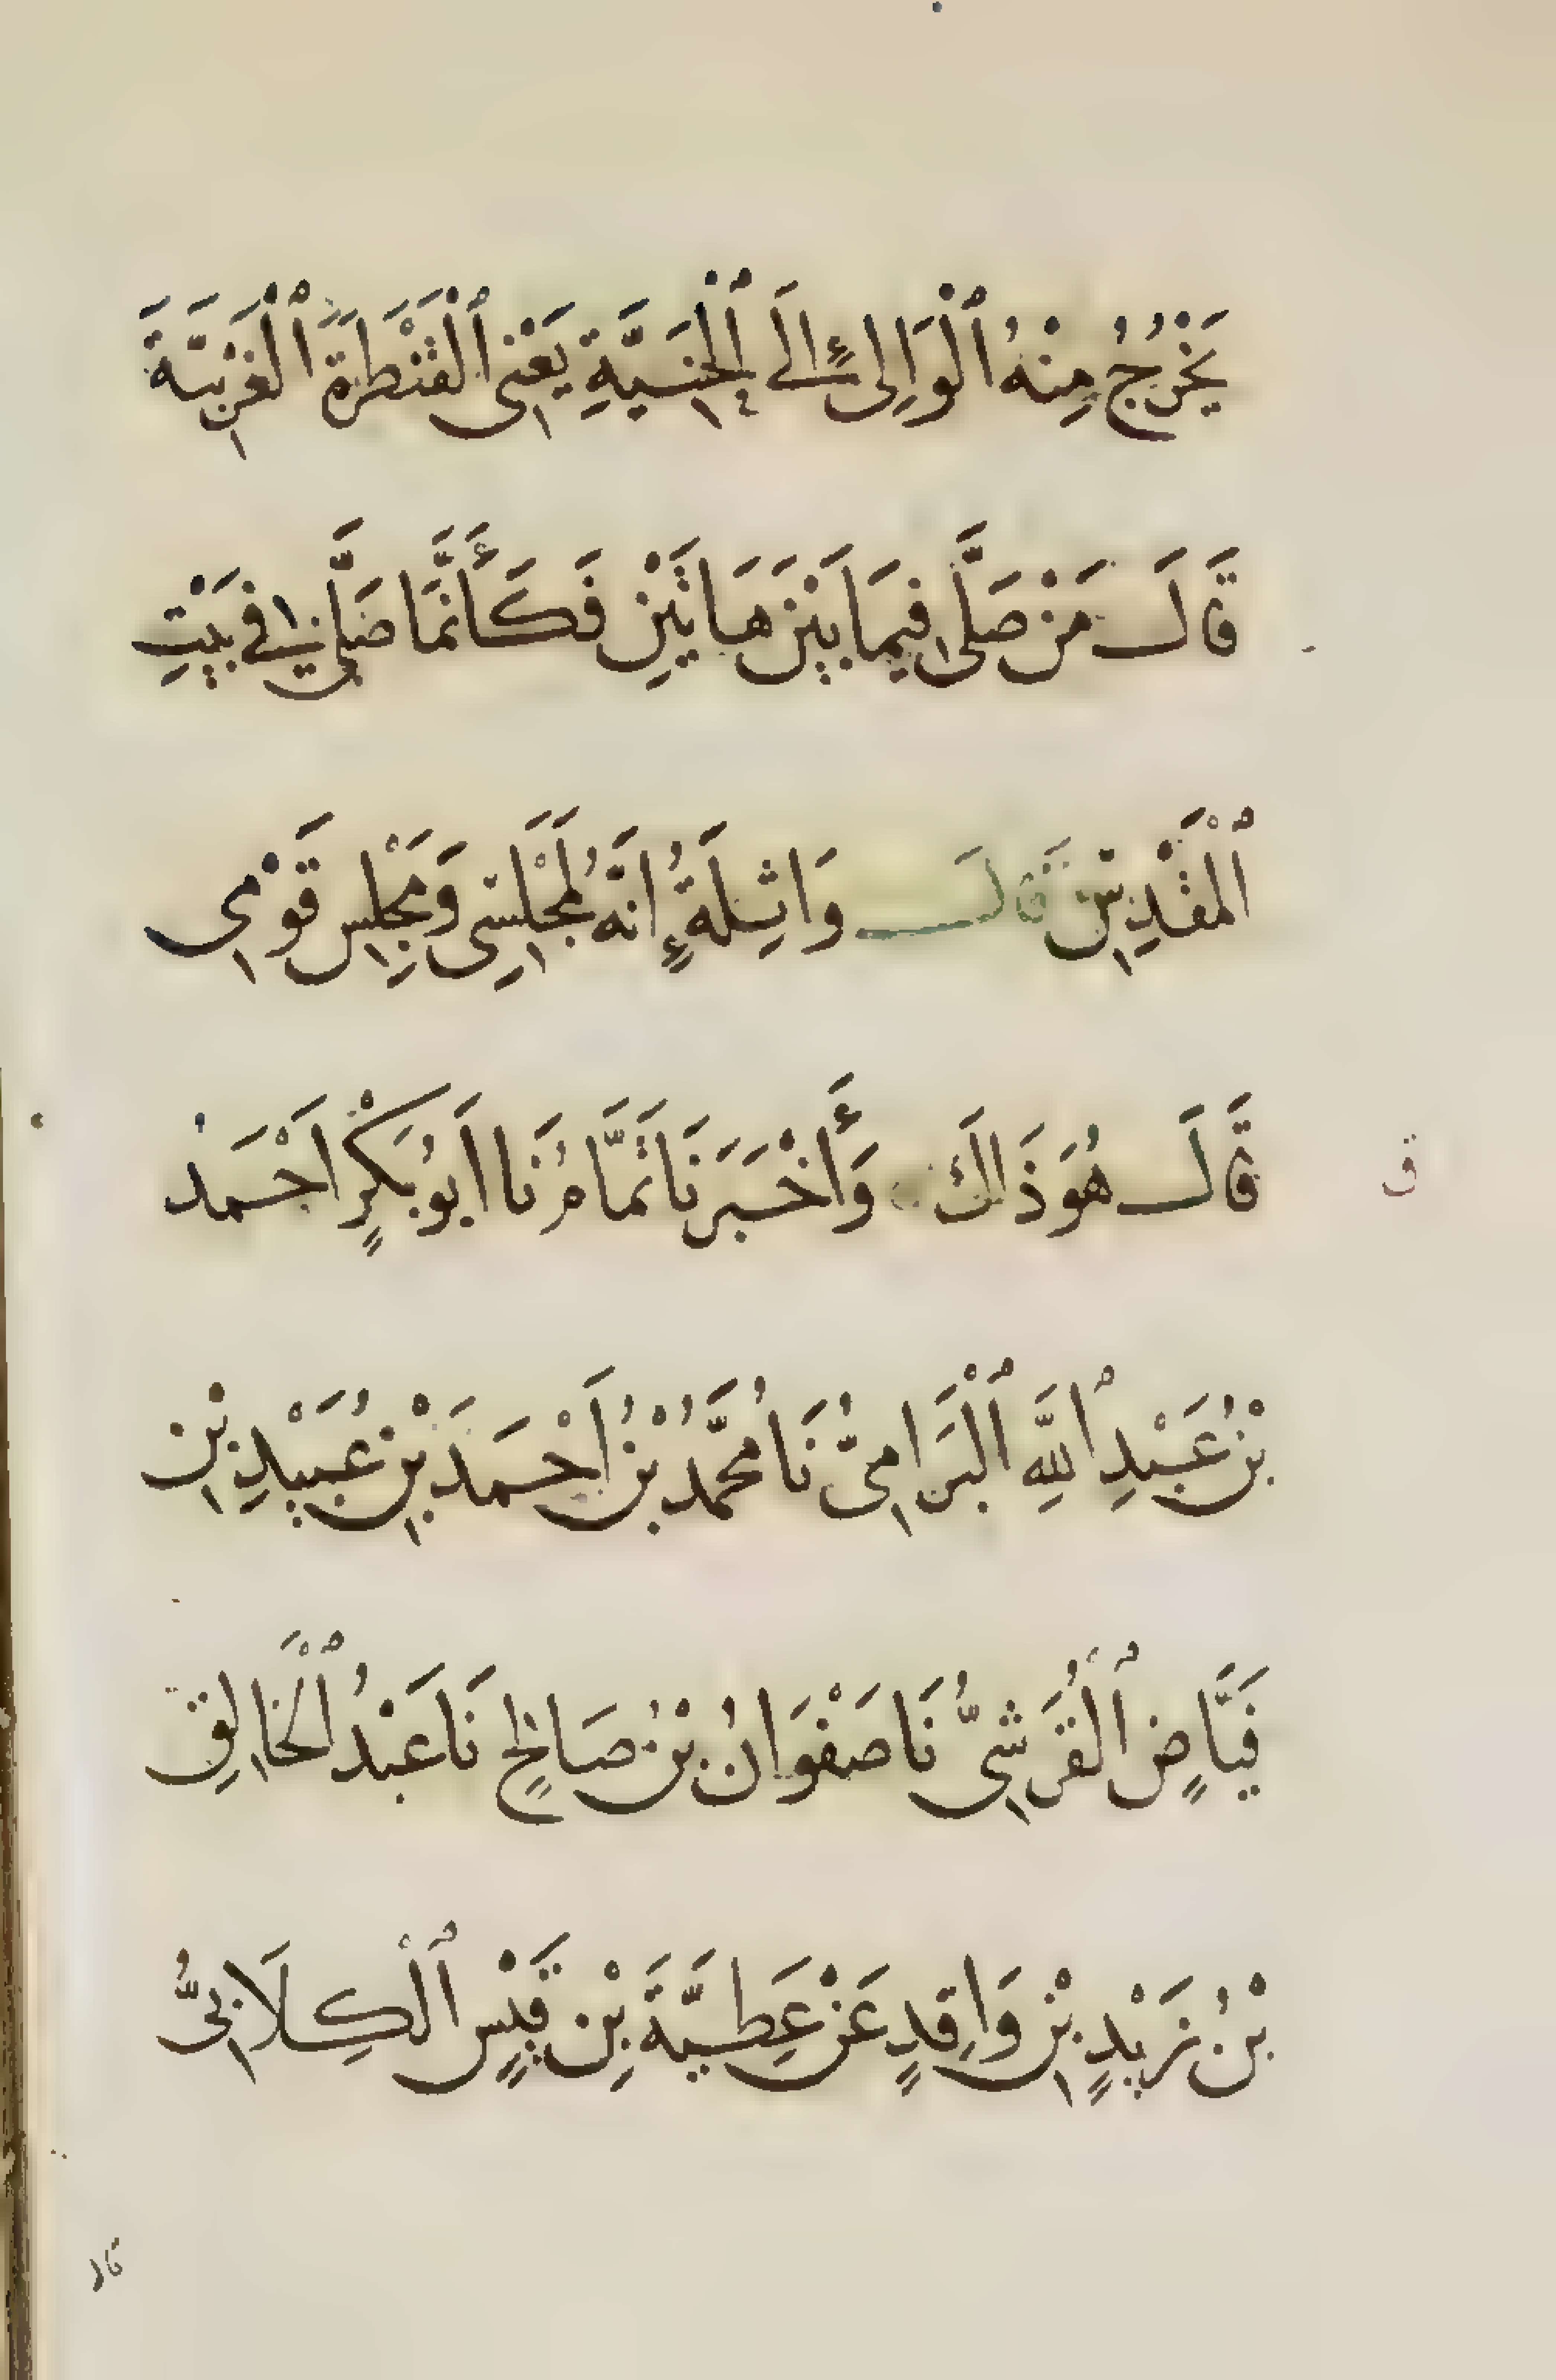 يَخْرُجُ مِنْهُ ٱلْوَالِىْ إِلَى ٱلْحَنِيَّةِ يَعْنِى ٱلْقَنْطَرَةَ ٱلْغَرْبِيَّةَ
قَالَ مَنْ صَلَّى فِيمَا بَيْنَ هَاتَيْنِ فَكَأَنَّمَا صَلَّى فِى بَيْتِ
ٱلْمَقْدِسِ فَقَالَ وَاثِلَةُ إِنَّهُ لَمَجْلِسِى وَمَجْلِسُ قَوْمِى
قَالَ هُوَ ذَاكَ وَأَخْبَرَنَا تَمَّامٌ نَا أَبُو بَكْرٍ أَحْمَدُ
بْنُ عَبْدِ ٱللَّهِ ٱلْبَرَامِىُّ نَا مُحَمَّدُ بْنُ أَحْمَدَ بْنِ عُبَيْدِ بْنِ
فَيَّاضٍ ٱلْقُرَشِىُّ نَا صَفْوَانُ بْنُ صَالِحٍ نَا عَبْدُ ٱلْخَالِقِ
بْنُ زَيْدِ بْنِ وَاقِدٍ عَنْ عَطِيَّةَ بْنِ قَيْسٍ ٱلْكِلَابِىُّ
قال